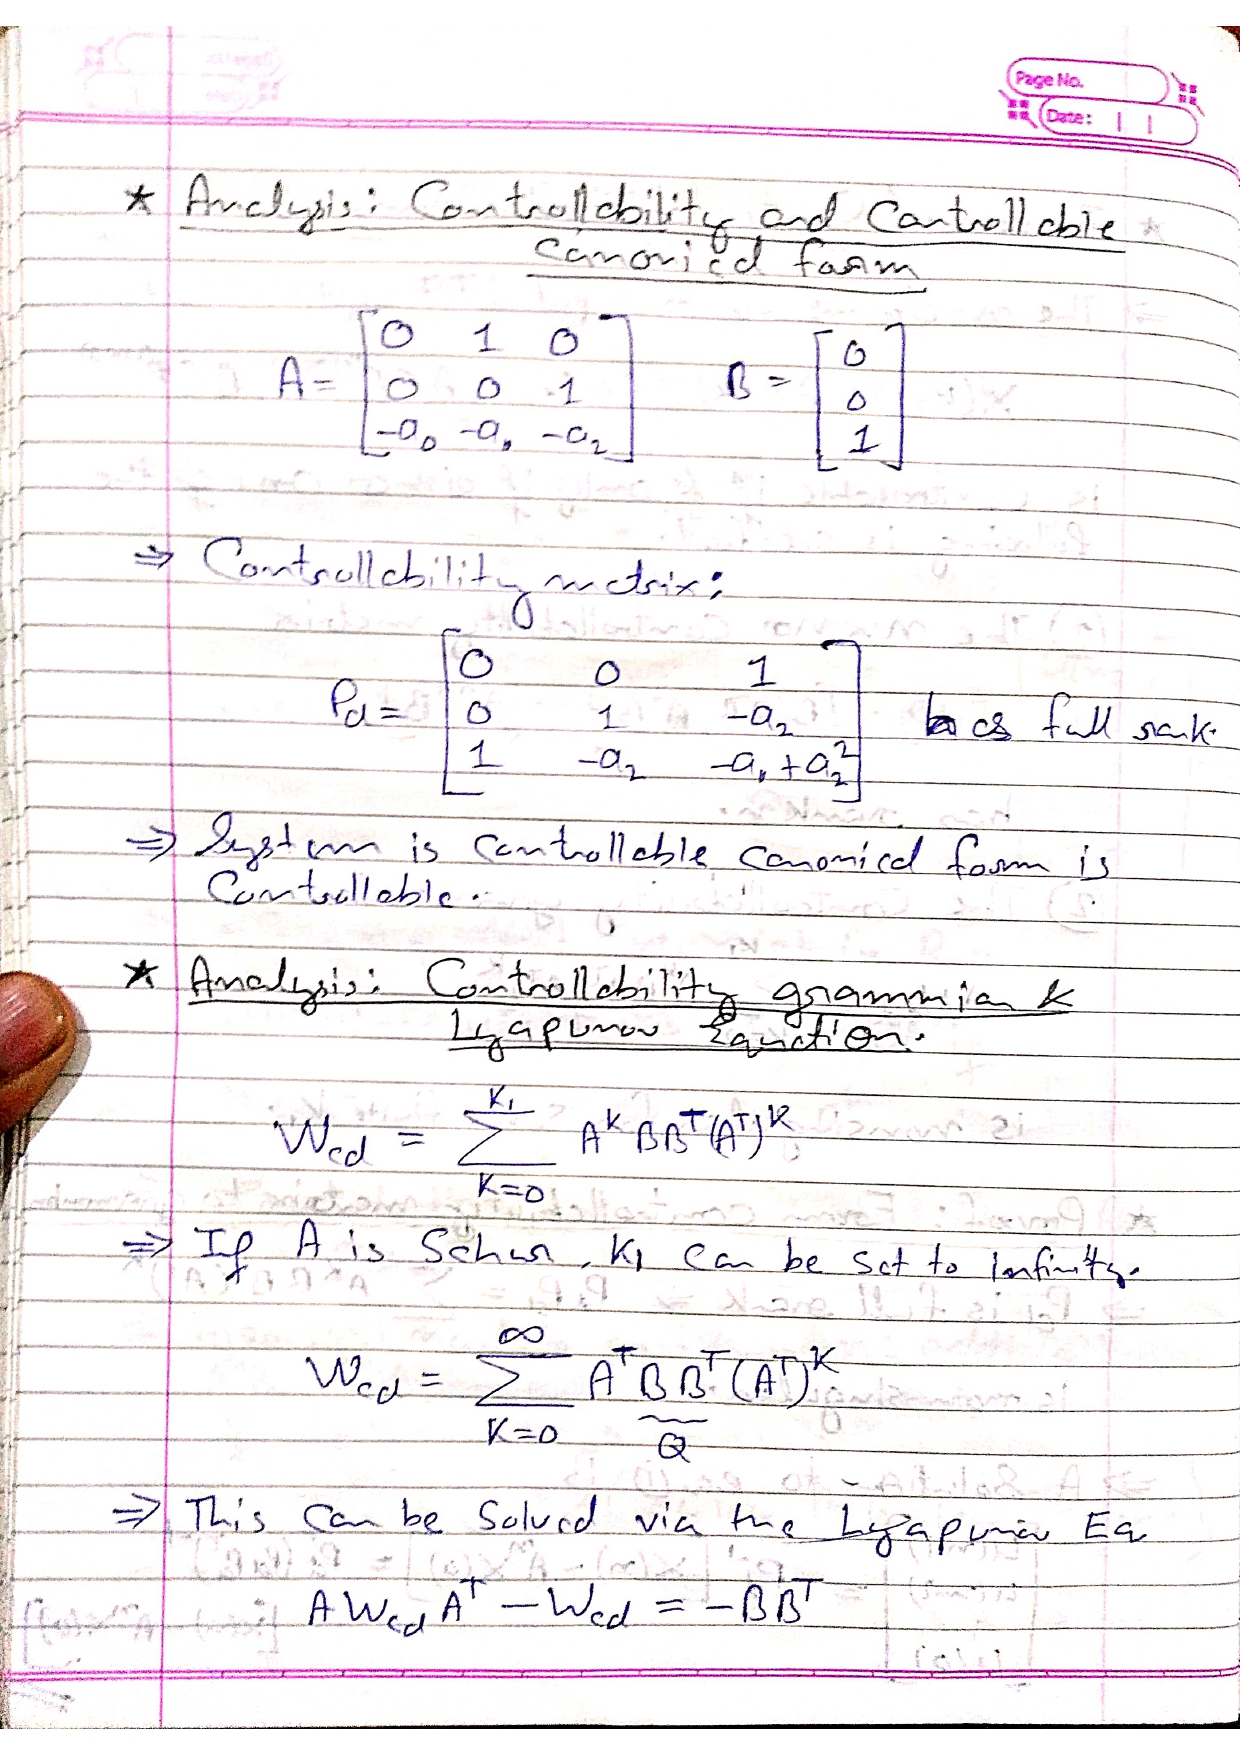 Page No.
Date:
★ Analysis: Controllability and Controllable
Canonical form
A = [0 1 0; 0 0 1; -a₀ -a₁ -a₂] B = [0; 0; 1]
⇒ Controllability matrix:
P_d = [0 0 1; 0 1 -a₂; 1 -a₂ -a₁+a₂²] has full rank.
⇒ System is controllable canonical form is
Controllable.
★ Analysis: Controllability grammian &
Lyapunov Equation.
W_cd = Σ_{K=0}^{K₁} A^K BB^T (A^T)^K
⇒ If A is Schur, K₁ can be set to infinity.
W_cd = Σ_{K=0}^{∞} A^T BB^T (A^T)^K
Q
⇒ This can be solved via the Lyapunov Eq
A W_cd A^T - W_cd = -BB^T